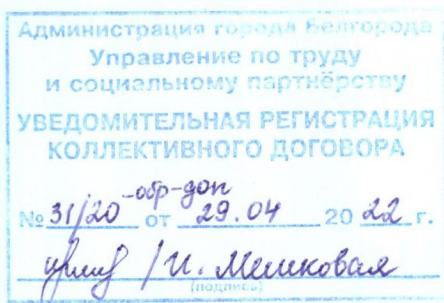 Администрация города Белгорода
Управление по труду
и социальному партнёрству
УВЕДОМИТЕЛЬНАЯ РЕГИСТРАЦИЯ
КОЛЛЕКТИВНОГО ДОГОВОРА
№ 31/20-обр-доп от 29.04 2022 г.
/И. Мешковая
(подпись)